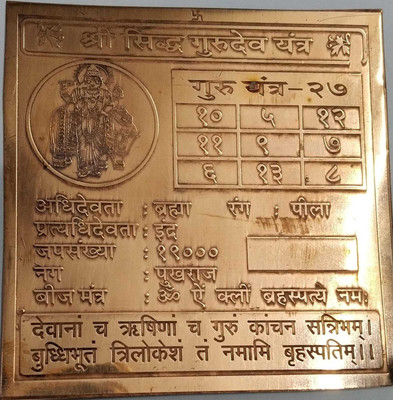 श्री सिद्ध गुरुदेव यंत्र
गुरु यंत्र-२७
१० ५ १२
११ ९ ७
६ १३ ८
अधिदेवता : ब्रह्मा रंग : पीला
प्रत्यधिदेवता : इंद्र
जपसंख्या : १९०००
नग : पुखराज
बीज मंत्र : ॐ ऐं क्लीं ब्रहस्पत्ये नमः
देवानां च ऋषिणां च गुरुं कांचन सन्निभम्।
बुध्धिभूतं त्रिलोकेश तं नमामि बृहस्पतिम्।।